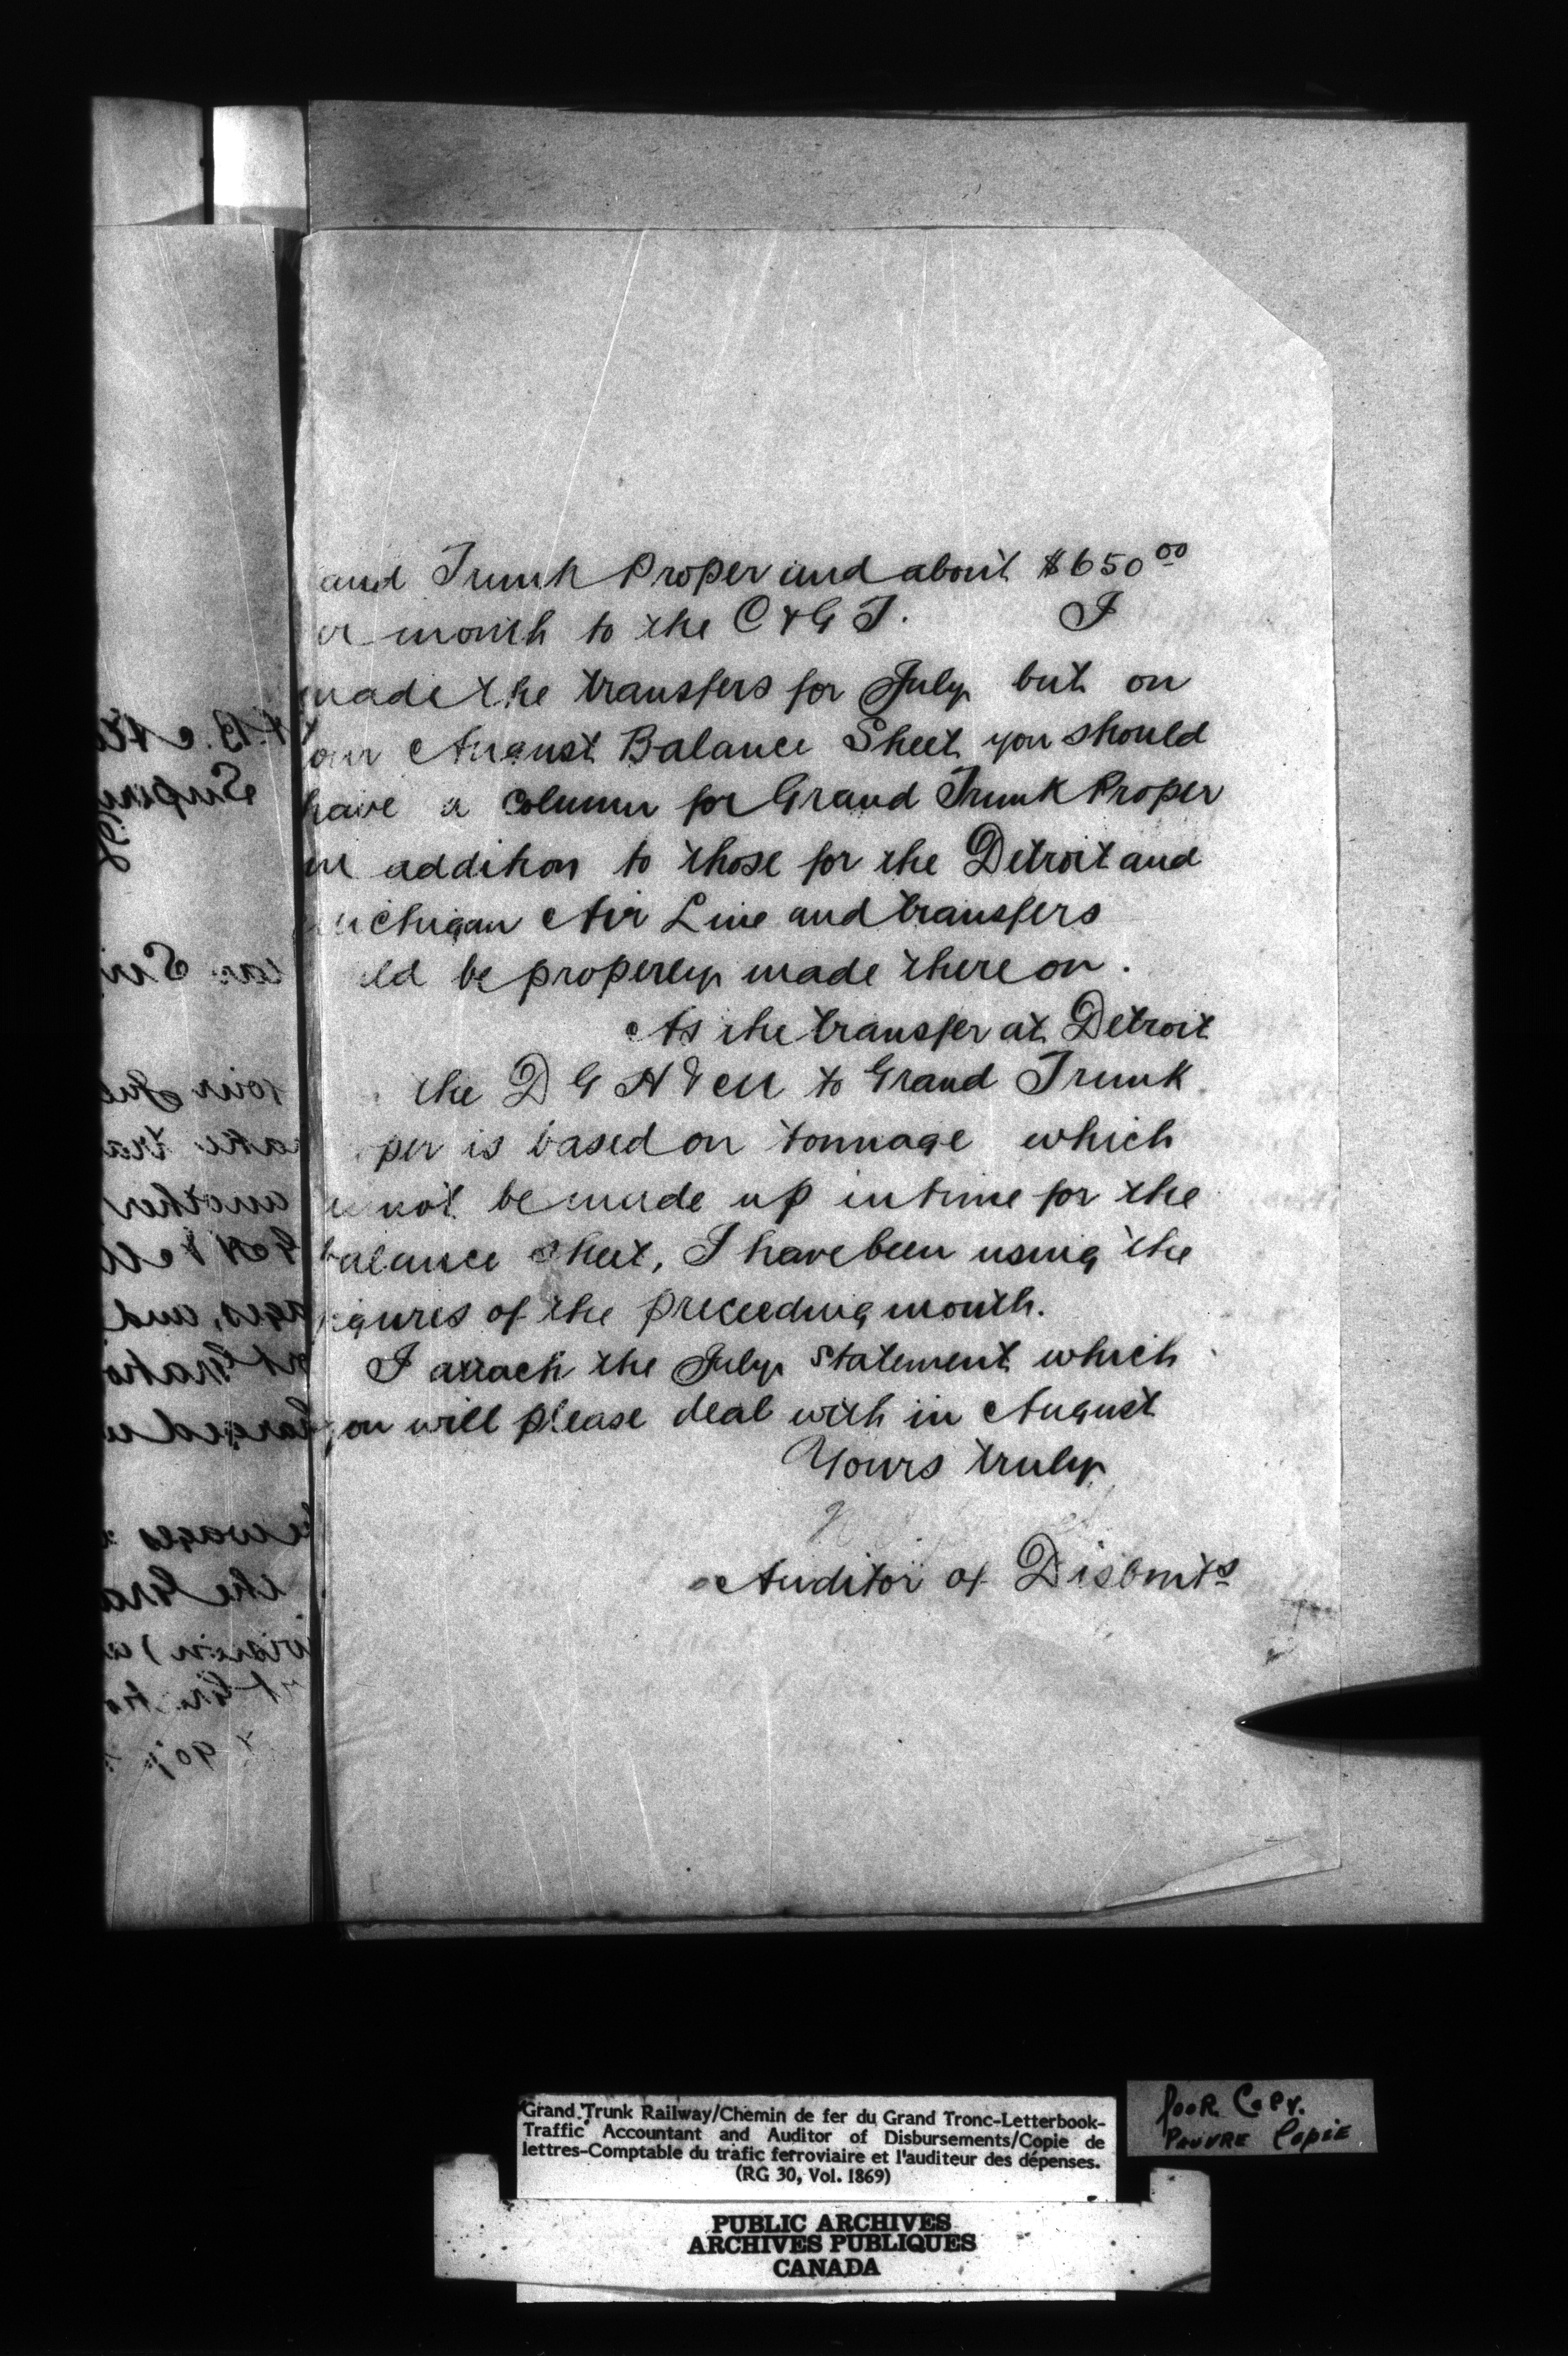 and Trunk Proper and about $650 00
er month to the C & G T. I
made the transfers for July but on
our August Balance Sheet you should
have a column for Grand Trunk Proper
in addition to those for the Detroit and
ichigan Air Line and transfers
ld be properly made there on.
As the transfer at Detroit
the D G H & M to Grand Trunk
per is based on tonnage which
not be made up in time for the
balance sheet, I have been using the
igures of the preceeding month.
I attach the July statement which
you will please deal with in August
Yours truly
Auditor of Disbmts
Grand Trunk Railway/Chemin de fer du Grand Tronc-Letterbook-
Traffic Accountant and Auditor of Disbursements/Copie de
lettres-Comptable du trafic ferroviaire et l'auditeur des dépenses.
(RG 30, Vol. 1869)
Poor Copy.
Pauvre Copie
PUBLIC ARCHIVES
ARCHIVES PUBLIQUES
CANADA